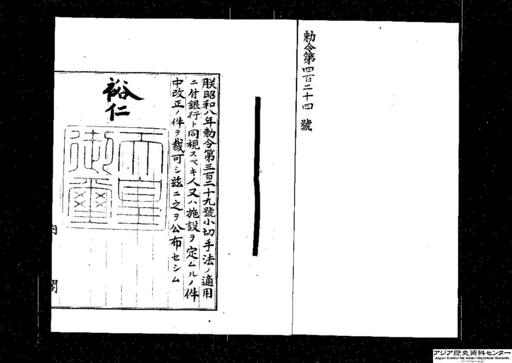 勅令第四百二十四號
朕昭和八年勅令第三百二十九號小切手法ノ適用
ニ付銀行ト同視スベキ人又ハ施設ヲ定ムルノ件
中改正ノ件ヲ裁可シ茲ニ之ヲ公布セシム
裕仁
天皇
御璽
内閣
アジア歴史資料センター
Japan Center for Asian Historical Records